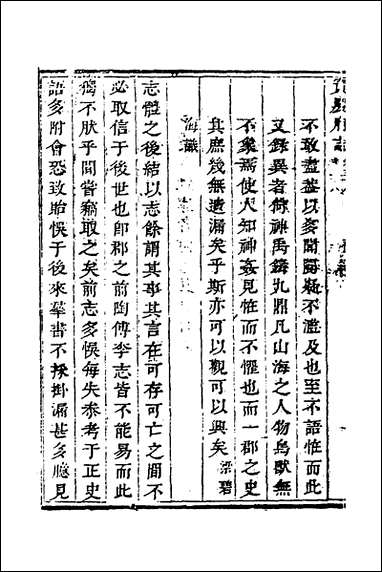 不敢盡蓋以多聞闕疑不濫及也至不語怪而此
又錄異者倘神禹鑄九鼎凡山海之人物鳥獸無
不象焉使人知神姦見怪而不懼也而一郡之史
其庶幾無遺漏矣乎斯亦可以觀可以興矣 梁碧
海識
志體之後結以志餘謂其事其言在可存可亡之間不
必取信于後世也卽郡之前陶傅李志皆不能易而此
獨不肰乎間嘗竊取之矣前志多悞每失叅考于正史
語多附會恐致貽悞于後來羣書不採掛漏甚多臆見